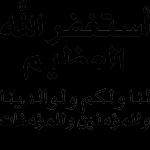 أستغفر الله
العظيم
لنا ولكم ولوالدينا
وللمؤمنين وللمؤمنات